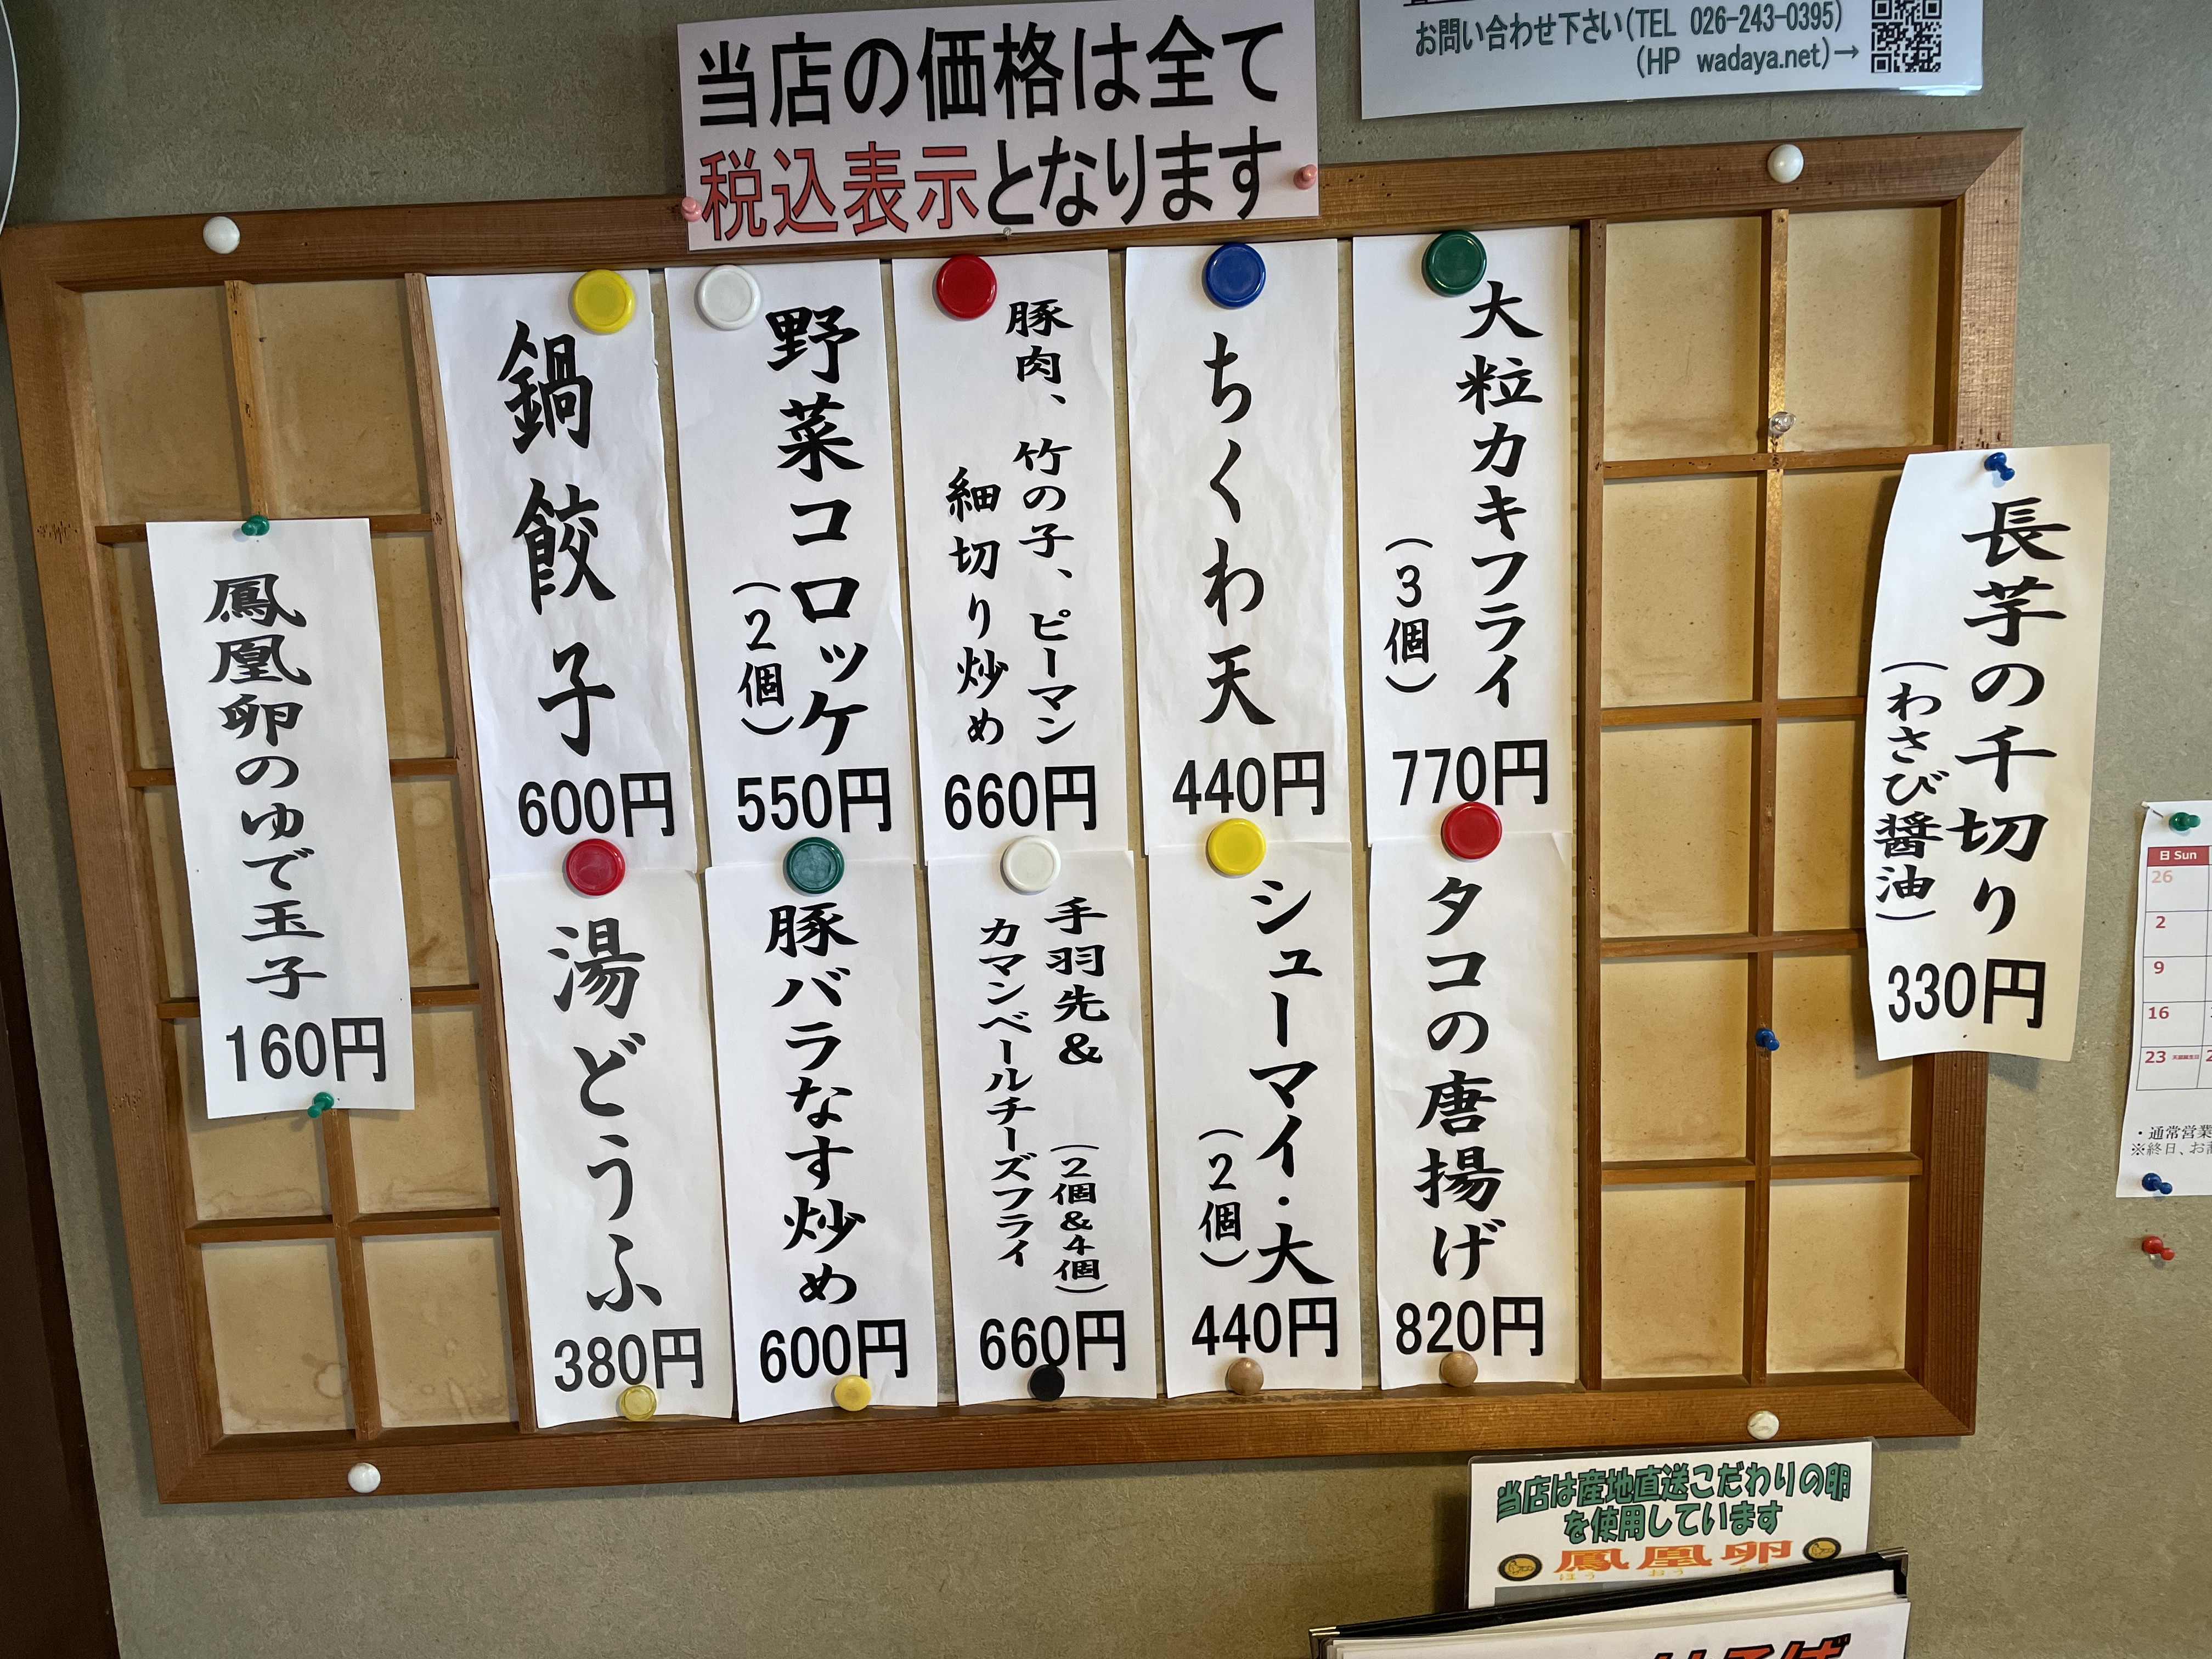 お問い合わせ下さい(TEL 026-243-0395)
(HP wadaya.net)→
当店の価格は全て
税込表示となります
長芋の千切り
(わさび醤油)
330円
大粒カキフライ
(3個)
770円
ちくわ天
440円
豚肉、竹の子、ピーマン
細切り炒め
660円
野菜コロッケ
(2個)
550円
鍋餃子
600円
タコの唐揚げ
820円
シューマイ・大
(2個)
440円
手羽先& (2個&4個)
カマンベールチーズフライ
660円
豚バラなす炒め
600円
湯どうふ
380円
鳳凰卵のゆで玉子
160円
日 Sun
26
2
9
16
23
・通常営業
※終日、お
当店は産地直送こだわりの卵
を使用しています
鳳凰卵
ほう おう